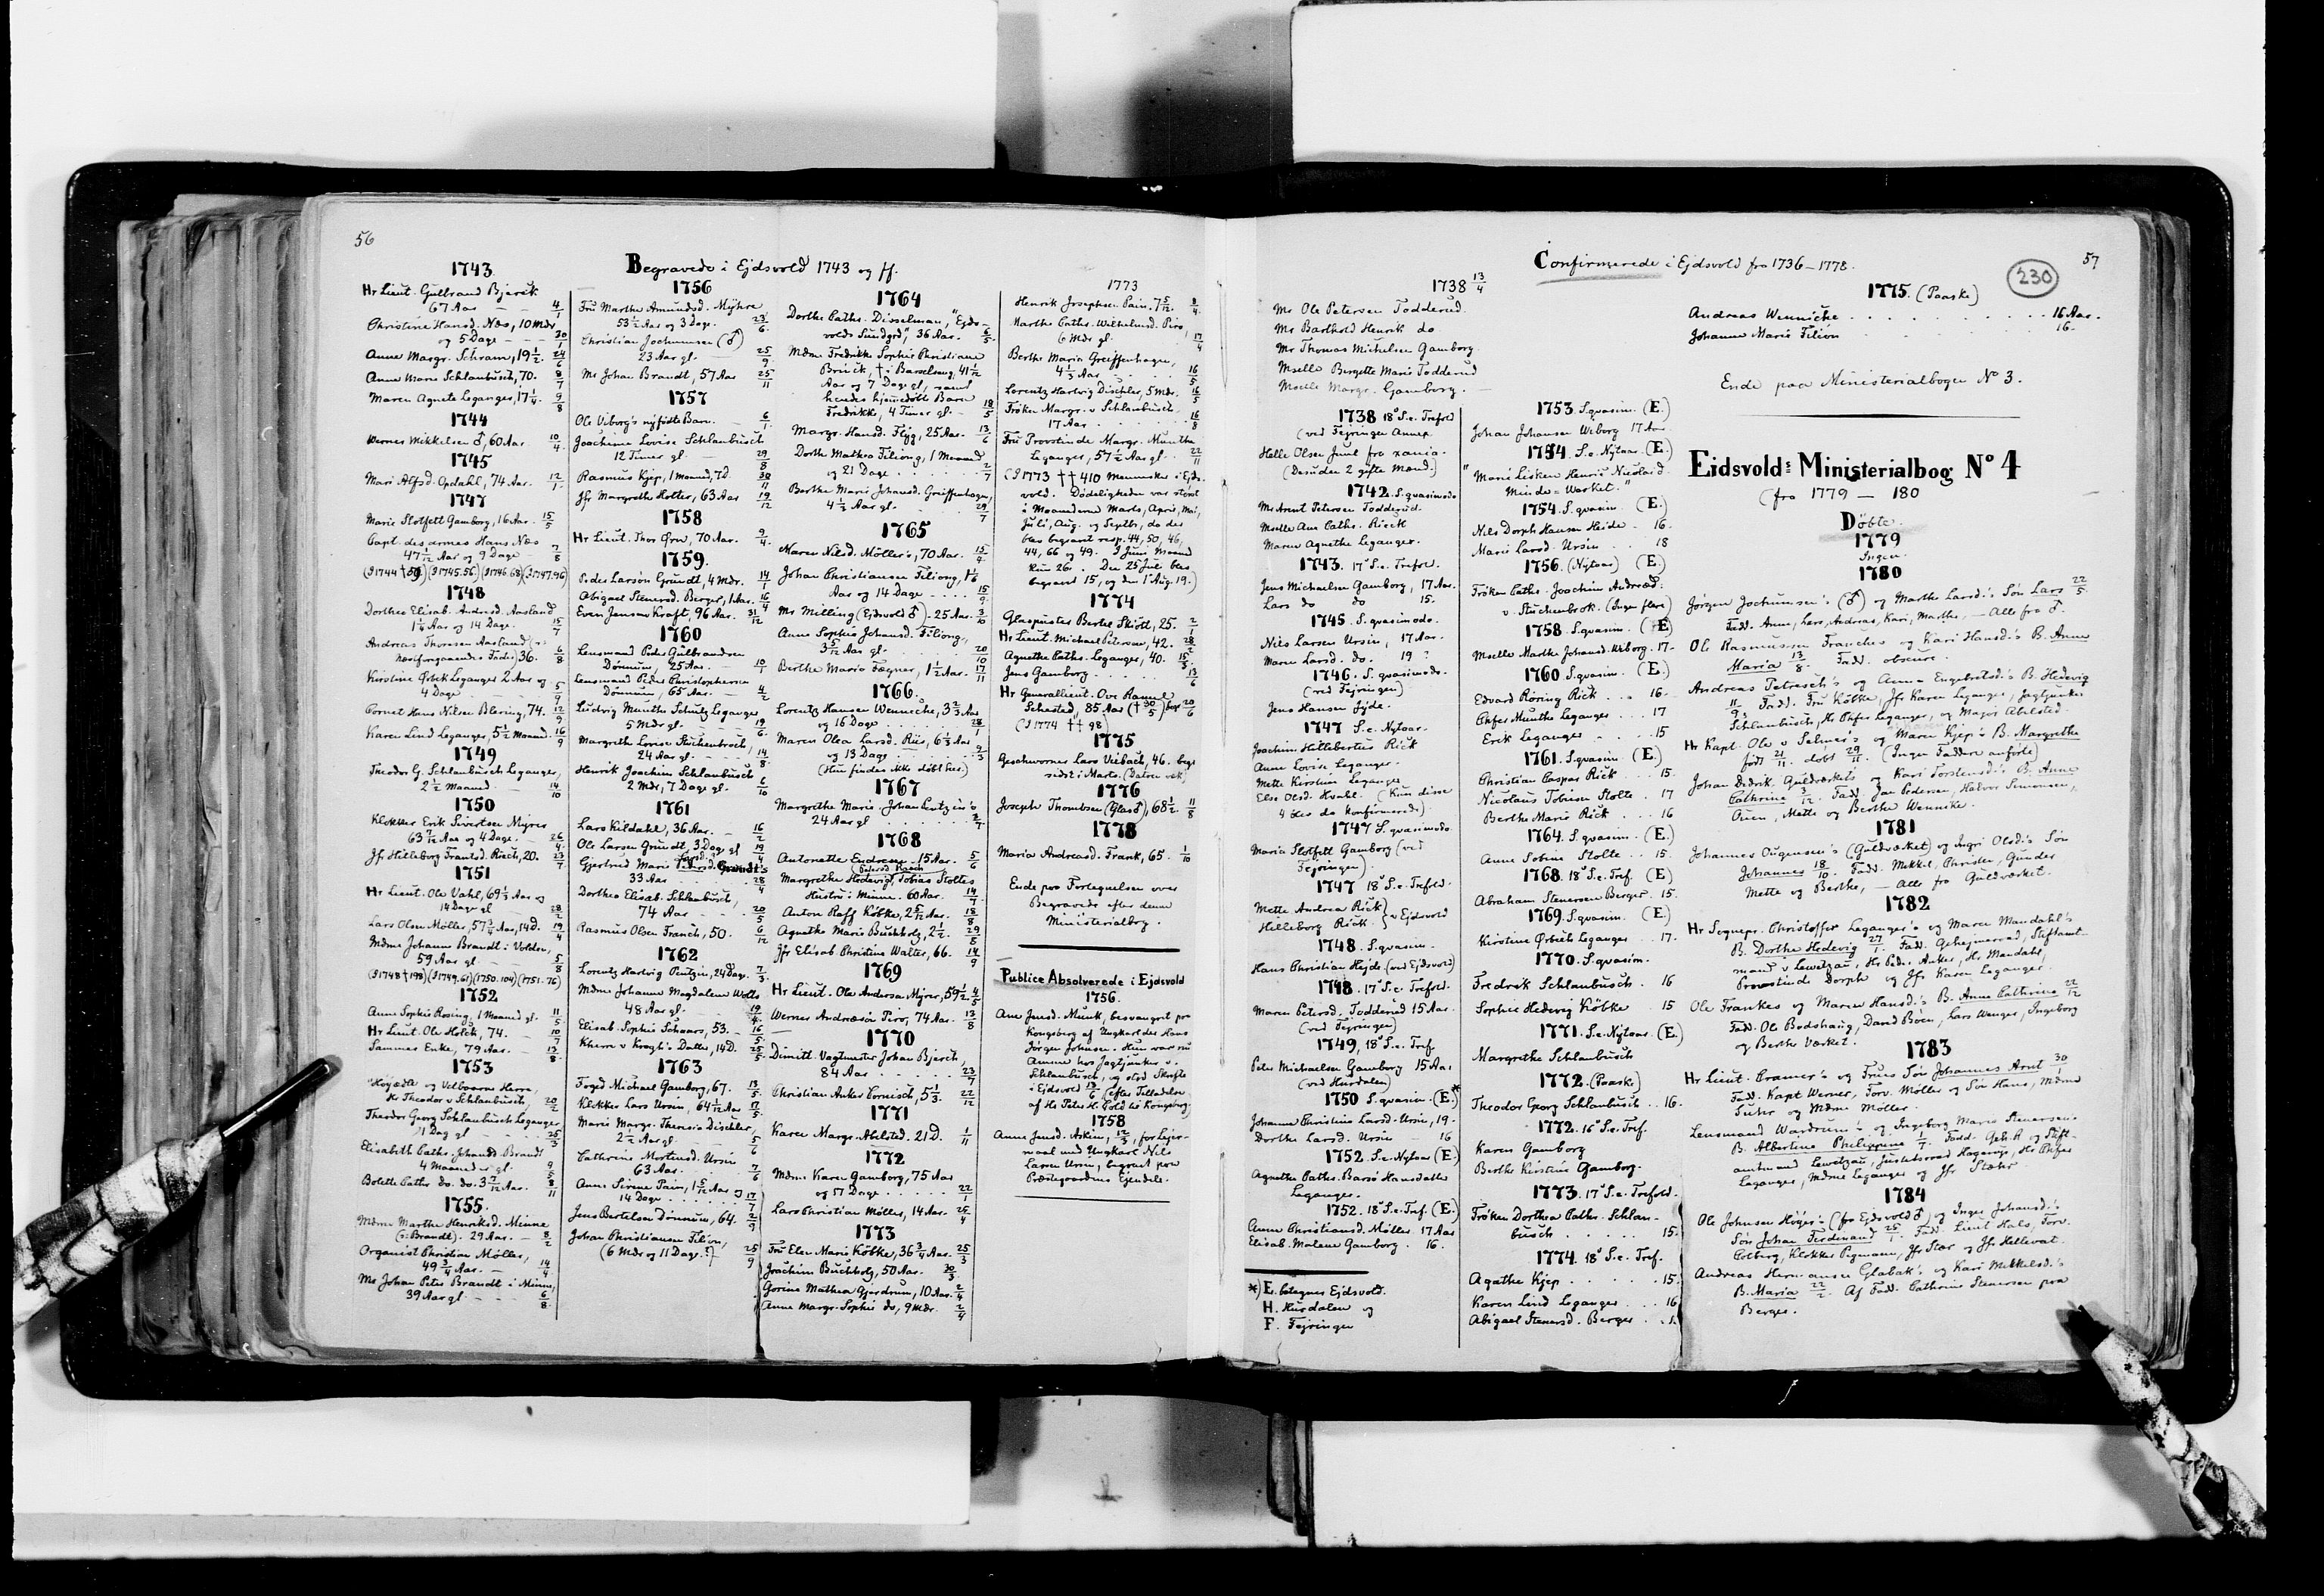 56
Begravede i Ejdsvold 1743 og ff.
1743
Hr Lieut. Gulbrand Bjerck
67 Aar 4/1
Christine Hansd. Næs, 10 Mdr
og 5 Dage 30/1
Anne Margr. Schram, 19 1/2. 24/6
Anne Marie Schlanbusch, 70. 8/7
Maren Agnete Leganger, 17 1/4. 9/8
1744
Wernes Mikkelsen ♂, 60 Aar. 10/4
1745
Mari Alfsd. Opdahl, 74 Aar. 12/1
1747
Marie Slotfett Gamborg, 16 Aar. 15/5
Capt. des armes Hans Næs
47 1/2 Aar og 9 Dage 7/8
(I 1744 † 59) (I 1745. 56) (I 1746. 68) (I 1747. 96)
1748
Dorthee Elisab. Andersd. Aasland
1 1/4 Aar og 14 Dage. 15/7
Andreas Thoresen Aasland (o:
næstforegaaendes Fader) 36. 6/8
Kirstine Örbek Leganger 2 Aar og
4 Dage 5/9
Cornet Hans Nilsen Blering, 74. 12/9
Karen Lind Leganger, 5 1/2 Maaned. 16/9
1749
Theodor G. Schlanbusch Leganger,
2 1/2 Maaned 14/10
1750
Klokker Erik Sivertsen Myrer
63 7/12 Aar og 4 Dage. 26/4
Jfr Hilleborg Frantsd. Rieck, 20. 23/7
1751
Hr Lieut. Ole Vahl, 69 1/3 Aar og
14 Dage gl 28/2
Lars Olsen Möller, 57 3/4 Aar, 14 D. 19/4
Mdme Johanne Brandt i Volden,
59 Aar gl 5/8
(I 1748 † 198) (I 1749. 61) (1750. 104) (1751. 76)
1752
Anne Sophie Rosing, 1 Maaned gl. 11/5
Hr Lieut. Ole Holck, 74. 10/7
Sammes Enke, 79 Aar. 13/8
1753
"Höyædle og Velbaarne Herre,
Hr Theodor v Schlanbusch, 20/2
Theodor Georg Schlanbusch Leganger
1 Dag gl 25/3
Elisabeth Cathr. Johansd. Brandt
4 Maaneder gl. 9/5
Bolette Cathr do. do. 3 7/12 Aar. 8/11
1755.
Mdme Marthe Henriksd. Minne
(o: Brandt). 29 Aar. 8/2
Organist Christian Möller,
49 3/4 Aar. 14/4
Mr Johan Peter Brandt i Minne,
39 Aar gl 6/8
1756
Fru Marthe Amundsd. Myhre
53 1/2 Aar og 3 Dage. 23/6
Christian Jochumsen (♂)
23 Aar gl. 25/9
Mr Johan Brandt, 57 Aar 25/11
1757
Ole Viborg's nyfödte Barn. 6/1
Joachime Lovise Schlanbusch
12 Timer gl. 29/8
Rasmus Kjep, 1 Maaned, 7 D. 30/11
Jfr Margrethe Holter, 63 Aar 19/12
1758
Hr Lieut. Thor Örn, 70 Aar. 9/4
1759.
Peder Larsön Grundt, 4 Mdr. 14/1
Abigael Stenersd. Berger, 1 Aar. 16/4
Even Jensen Kraft, 96 Aar. 31/12
1760
Lensmand Peder Gulbrandsen
Dönnum, 25 Aar. 10/1
Lensmand Peder Christophersen
Dönnum, 65 Aar. 4/2
Ludvig Munthe Schultz Leganger
5 Mdr gl. 19/6
Margrethe Lovise Stuchenbroch,
24 Aar gl. 14/8
Henrik Joachim Schlanbusch
2 Mdr, 7 Dage gl. 6/10
1761
Lars Kildahl, 36 Aar. 16/2
Ole Larsen Grundt, 3 Dage gl 19/4
Gjertrud Marie Grundt's
33 Aar 28/4
Dorthea Elisab. Schlanbusch,
74 Aar 20/5
Rasmus Olsen Franck, 50. 6/12
1762
Lorentz Hartvig Peutzin, 24 Dage. 7/3
Mdme Johanne Magdalena Wolls
48 Aar gl. 19/4
Elisab. Sophie Schaars, 53. 16/5
Khern v Krogh's Datter, 14 D. 25/5
1763
Foged Michael Gamborg, 67. 13/5
Klokker Lars Ursin, 64 1/12 Aar 17/5
Marie Margr. Theresia Dischler,
2 1/2 Aar gl. 5/6
Cathrine Mortensd. Ursin
63 Aar. 7/6
Anne Sirine Pain, 1 5/12 Aar og
14 Dage 17/7
Jens Bertelsen Dönnum, 64. 2/9
Johan Christiansen Filion,
(6 Mdr og 11 Dage.?) 25/9
1764
Dorthe Cathr. Disselman, "Ejds-
volds Sundgrd", 36 Aar. 6/5
Mdme Fredrikke Sophie Christiane
Brück, † i Barselseng, 41 1/12
Aar og 7 Dage gl, samt
hendes hjemedöbte Barn
Fredrikke, 4 Timer gl. 18/5
Margr. Hansd. Flyg, 25 Aar. 13/6
Dorthe Mathea Filiong, 1 Maaned
og 21 Dage 2/7
Berthe Marie Johansd. Greiffenhagen,
4 1/3 Aar gl. 29/7
1765
Maren Nilsd. Möller's, 70 Aar. 15/4
Johan Christiansen Filiong, 1 1/6
Aar og 14 Dage 15/9
Mr Milling (Ejdsvold ♂). 25 Aar. 3/10
Anne Sophie Johansd. Filiong,
3 5/12 Aar gl. 20/10
Berthe Marie Fagner, 1 1/2 Aar. 17/11
1766.
Lorentz Hansen Wennecke, 3 2/3 Aar
og 16 Dage 28/1
Maren Olea Larsd. Riis, 6 1/3 Aar
og 13 Dage 9/3
(Hun findes ikke döbt her.)
1767
Margrethe Marie Johan Lentzin's
24 Aar gl
1768
Antonette Endresen. 15 Aar. 5/6
(Petersd. Rasch)
Margrethe Hedevig, Tobias Stoltes
Hustru i Minne. 60 Aar. 14/7
Anton Raff Köbke, 2 5/12 Aar. 18/8
Agnethe Marie Buchholz, 2 1/2. 29/8
Jfr Elisab Christine Walter, 66. 14/9
1769
Hr Lieut. Ole Andersen Myrer, 59 1/2. 4/5
Wernes Andreæsön Piro, 74 Aar. 13/8
1770
Dimitt. Vagtmester Johan Bjerck,
84 Aar 23/7
Christian Anker Cornisch, 5 1/3. 22/12
1771
Karen Margr. Abelsted. 21 D. 1/11
1772
Mdme Karen Gamborg, 75 Aar
og 17 Dage 22/1
Lars Christian Möller, 14 Aar. 25/4
1773
Fru Elen Marie Köbke, 36 3/4 Aar. 25/3
Joachim Buchholz, 50 Aar. 30/3
Gorine Mathea Gjerdrum, 10 Aar. 2/4
Anne Margr. Sophie do, 9 Mdr. 2/4
1773
Henrik Josephsen Pain. 7 5/12. 8/4
Marthe Cathr. Wilhelmsd. Piro,
6 Mdr gl. 17/4
Berthe Maria Greiffenhagen,
4 1/3 Aar 16/5
Lorentz Hartvig Dischler, 5 Mdr. 16/5
Fröken Margr. v Schlanbusch
17 Aar 16/8
Fru Provstinde Margr. Munthe
Leganger, 57 1/2 Aar gl. 22/11
(I 1773 †† 410 Mennesker i Ejds-
vold. Dödeligheden var störst
i Maanederne Marts, April, Mai,
Juli, Aug. og Septbr, da der
blev begravet resp. 44, 50, 46,
44, 66 og 49. I Juni Maaned
kun 26. Den 25 Juli blev
begravet 15, og den 1 Aug. 19.)
1774
Glaspuster Berthe Skiött, 25. 2/1
Hr Lieut. Michael Petersen, 42. 28/2
Agnethe Cathr. Leganger, 40. 15/5
Jens Gamborg 13/6
Hr Generallieut. Ove Ramel
Sehested, 85 Aar († 30/5) begr 20/6
(I 1774 †† 98)
1775
Geschworner Lars Viebach, 46. begr
sidst i Marts. (Datoen væk)
1776
Joseph Thombsen (Glas ♂), 68 1/2. 11/8
1778
Maria Andreasd. Frank, 65. 1/10
Ende paa Fortegnelsen over
Begravede efter denne
Ministerialbog.
Publice Absolverede i Ejdsvold
1756.
Ane Jensd. Munk, besvangret paa
Kongsberg af Ungkarl des Hans
Jörgen Johnsen. Hun var nu
Amme hos Jagtjunker v.
Schlanbusch, og stod Skrifte
i Ejdsvold 13/6 (efter Tilladelse
af Hr Peter H. Gold til Kongsberg)
1758
Anne Jensd. Asken, 12/3, for Lejer-
maal med Ungkarl Nils
Larsen Ursin, begaaet paa
Præstegaardens Ejendele.
Confirmerede i Ejdsvold fra 1736-1778.
57
230
1738 13/4
Mr Ole Petersen Todderud.
Mr Barthold Henrik do
Mr Thomas Michelsen Gamborg.
Mselle Bergette Marie Todderud
Mselle Margr. Gamborg.
1738 18' S.e. Trefold
(ved Fejringen Annex
Helle Olsen Juul fra Xania.
(Desuden 2 gifte Mænd.)
1742. S. quasimodo
Mr Arent Petersen Todderud.
Mselle Ane Cathr. Rieck
Maren Agnethe Leganger.
1743. 17' S.e. Trefold.
Jens Michaelsen Gamborg, 17 Aar.
Lars do do 15.
1745. S. quasimodo.
Niels Larsen Ursin, 17 Aar.
Maren Larsd. do. 19 ?
1746. S. quasimodo.
(ved Fejringen)
Jens Hansen Gyde.
1747 S.e. Nytaar.
Joachim Hillebertus Rick
Anne Lovise Leganger.
Mette Kirstine Leganger
Else Olsd. Hvahl. (Kun disse
4 blev da konfirmerede).
1747 S. quasimodo.
Maria Slotfett Gamborg (ved
Fejringen)
1747 18' S.e. Trefold.
Mette Andrea Rick
Helleborg Rick. } v Ejdsvold
1748. S. quasim.
Hans Christian Hejde. (ved Ejdsvold)
1748. 17' S.e. Trefold.
Maren Petersd. Todderud 15 Aar
(ved Fejringen)
1749, 18' S.e. Tref.
Peder Michaelsen Gamborg 15 Aar
(ved Hurdalen)
1750 S. quasim. (E.)*
Johanne Christine Larsd. Ursin, 19.
Dorthe Larsd. Ursin 16
1752. S.e. Nytaar (E.)
Agnethe Cathr. Barsö Hansdatter
Leganger.
1752. 18' S.e. Tref. (E.)
Anne Christiansd. Möller 17 Aar
Elisab. Malene Gamborg. 16.
*) E. betegner Ejdsvold.
H. Hurdalen og
F. Fejringen
1753. S. quasim. (E.)
Johan Johansen Wiborg 17 Aar.
1754. S.e. Nytaar. (E.)
"Marie Lisken Henric Nicolai d.
Minde-Warket."
1754. S. quasim. (E.)
Niels Dorph Hansen Heide. 16.
Marie Larsd. Ursin 18
1756. (Nytaar) (E.)
Fröken Cathr. Joachim Andread.
v. Stuchenbrok. (Ingen flere)
1758. S. quasim. (E)
Mselle Marthe Johansd. Wiborg. 17.
1760. S. quasim. (E.)
Edvard Röring Rick 16.
Chrfer Munthe Leganger 17
Erik Leganger 15
1761. S. quasim. (E.)
Christian Caspar Rick 15.
Nicolaus Tobiesen Stolte. 17
Berthe Marie Rick 16
1764. S. quasim. (E.)
Anne Sobine Stolte 15.
1768. 18' S.e. Tref. (E)
Abraham Stenersen Berger. 15.
1769. S. quasim. (E.)
Kirstine Örbech Leganger 17.
1770. S. quasim.
Fredrik Schlanbusch. 16
Sophie Hedevig Köbke 15
1771. S.e. Nytaar. (E.)
Margrethe Schlanbusch
1772. (Paaske)
Theodor Georg Schlanbusch 16.
1772. 16' S.e. Tref.
Karen Gamborg
Berthe Kirstine Gamborg.
1773. 17' S.e. Trefold.
Fröken Dorthea Cathr. Schlan-
busch 15.
1774. 18' S.e. Tref.
Agathe Kjep 15.
Karen Lind Leganger 16
Abigael Stenersd. Berger
1775. (Paaske)
Andreas Wennicke 16 Aar.
Johanne Marie Filion 16.
Ende paa Ministerialbogen No 3.
Eidsvold's Ministerialbog No 4
(fra 1779 — 180
Döbte.
1779
Ingen.
1780
Jörgen Jochumsen's (♂) og Marthe Larsd.'s Sön Lars 22/5.
Fadd. Anne, Lars, Andreas, Kari, Marthe, — Alle fra ♂.
Ole Rasmussen Franckes og Kari Hansd.'s B. Anne
Maria 13/8. Fadd. obscure.
Andreas Petrasch's og Anne Engebretsd.'s B. Hedevig
11/9. Fadd. Fru Köbke, Jfr Karen Leganger, Jagtjunker
Schlanbusch, Hr Chrfer Leganger, og Major Abelsted.
Hr Kapt. Ole v Selmer's og Maren Kjep's B. Margrethe
födt 21/11. döbt 29/11. (Ingen Faddere anförte)
Johan Didrik Guldværkets og Kari Torstensd.'s B. Anne
Cathrine 3/12. Fadd. Jan Pedersen, Halvor Simonsen,
Arien, Mette og Berthe Wennike.
1781
Johannes Ougensen's (Guldværket) og Ingri Olsd.'s Sön
Johannes 18/10. Fadd. Mikkel, Christen, Gunder
Mette og Berthe, — Alle fra Guldværket.
1782
Hr Sogenpr. Christoffer Leganger's og Maren Mandahl's
B. Dorthe Hedevig 27/1. Fadd. Gehejmeraad, Stiftamt-
mand v Lewetzau, Hr Peder Anker, Hr Mandahl,
Provstinde Dorph og Jfr Karen Leganger,
Ole Frankes og Maren Hansd.'s B. Anne Cathrine 22/12
Fadd. Ole Bodshaug, David Böen, Lars Wenger, Ingeborg
og Berthe Værket.
1783
Hr Lieut. Cramer's og Frues Sön Johannes Arnt 30/1
Fadd. Kapt Werner, Forv. Möller og Sön Hans, Mdme
Suhr og Mdme Möller.
Lensmand Wardrum's og Ingeborg Marie Stenersen's
B. Albertine Philippine 1/7. Fadd. Geh.R og Stift-
amtmand Lewetzau, Justitsraad Hagerup, Hr Chrfer
Leganger, Mdme Leganger og Jfr Stæhr
1784
Ole Johnsen Höyer's (fra Ejdsvold ♂) og Inger Johansd.'s
Sön Johan Ferdinand 25/1. Fadd. Lieut Hals, Forv.
Coeberg, Klokker Pegmann, Jfr Stær og Jfr Hellevat.
Andreas Hermansen Glabak's og Kari Mikkelsd.'s
B. Maria 22/2. Af Fadd. Cathrine Stenersen paa
Berger.